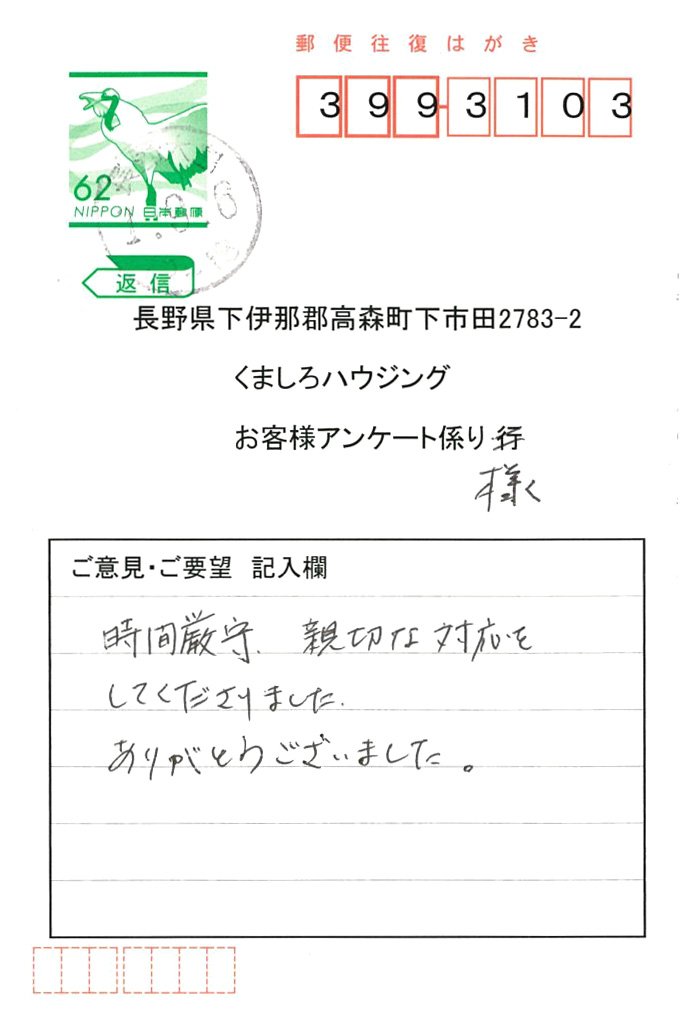 郵便往復はがき
399-3103
62
NIPPON 日本郵便
返信
長野県下伊那郡高森町下市田2783-2
くましろハウジング
お客様アンケート係り 行
様
ご意見・ご要望 記入欄
時間厳守、親切な対応を
してくださりました.
ありがとうございました。